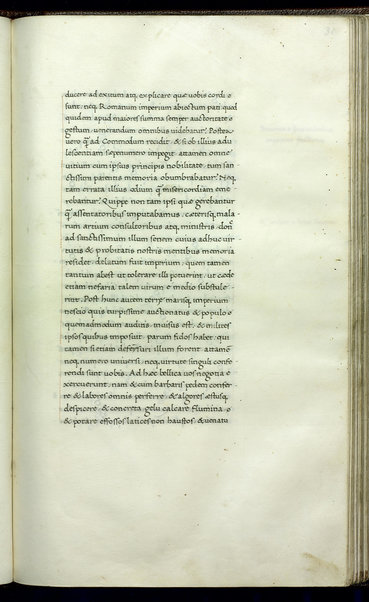 ducere ad exitum atq. explicare quæ uobis cordi e
sunt, neq. Romanum imperium abiectum pati, quod
quidem apud maiores summa semper auctoritate e
gestum uenerandum omnibus uidebatur. Postea
uero q̃ ad Commodum recidit, & si ob illius adu
lescentiam sæpenumero impegit, attamen omne
uitium cum ipsius principis nobilitate, tum san
ctissimi parentis memoria obumbrabatur. Neq.
tam errata illius odium q̃ misericordiam eme
rebantur. Quippe non tam ipsi quæ gerebantur
q̃ assentatoribus imputabamus, cæterisq. mala
rum artium consultoribus atq. ministris, donec
ad sanctissimum illum senem cuius adhuc uir
tutis & probitatis nostris mentibus memoria
residet, delatum fuit imperium, quem tamen
tantum abest ut tolerare illi potuerint, ut cæde
etiam nefaria talem uirum e medio substule
rint. Post hunc autem terræ marisq. imperium
nescio quis turpissime auctionatus & populo e
quemadmodum auditis inuisus est, & milites
ipsos quibus imposuit parum fidos habet, qui
tamen si etiam defensuri illum forent, attamen
neq. numero uniuersi, neq. uirtute singuli confe
rendi sunt uobis. Ad hæc bellica uos negotia e
xercuerunt, nam & cum barbaris pedem confer
re & labores omnis perferre & algores æstusq.
despicere & concreta gelu calcare flumina e
& potare effossos latices non haustos, & uenatu